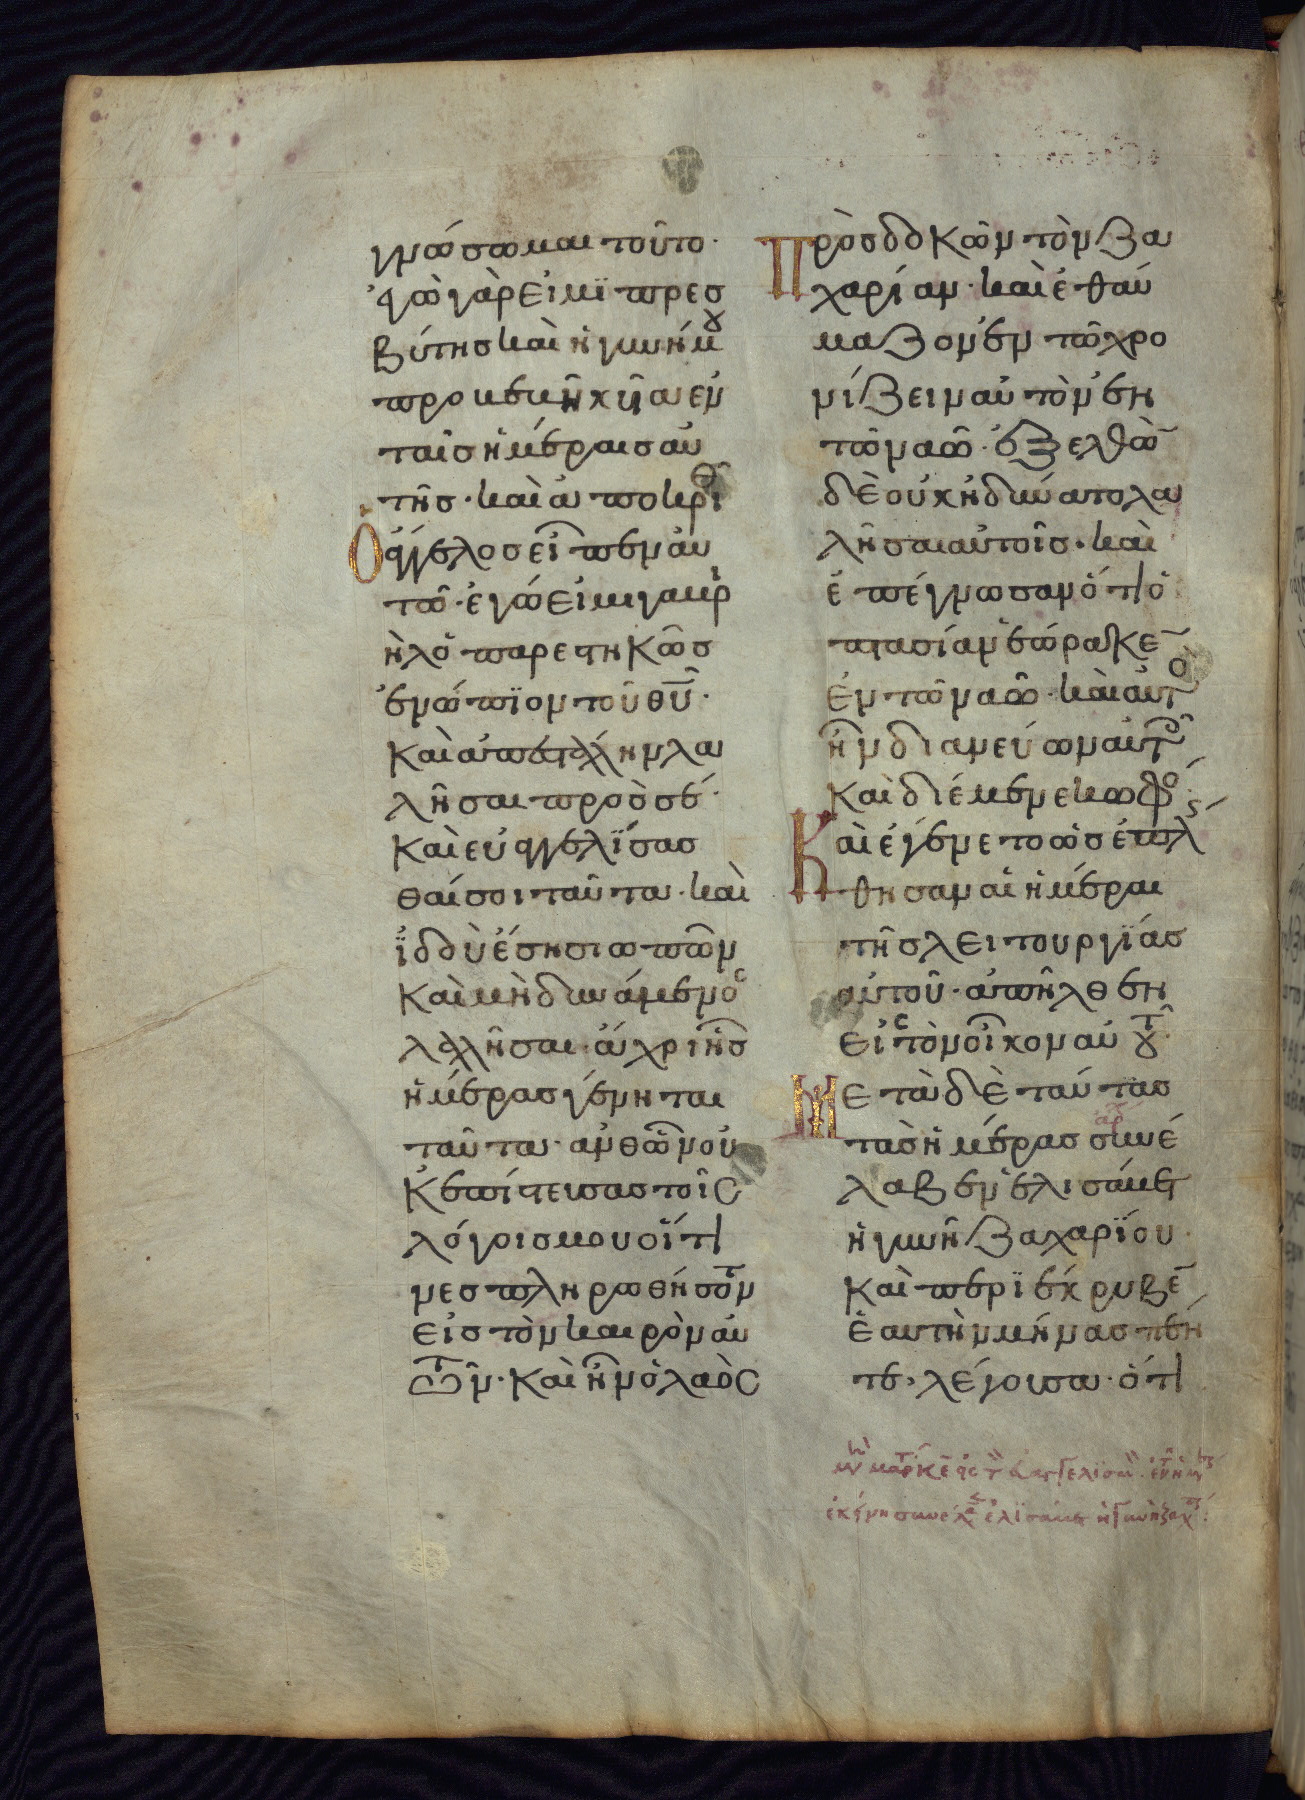 γνώσωμαι τοῦτο·
ἐγὼ γὰρ εἰμὶ πρεσ
βύτης καὶ ἡ γυνή μου
προβεβηκυῖα ἐν
ταῖς ἡμέραις αὐ
τῆς· καὶ ἀποκριθεὶς
Ὁ ἄγγελος εἶπεν αὐ
τῶ· ἐγώ εἰμι γαβρι
ὴλ ὁ παρεστηκῶς
ἐνώπιον τοῦ θυ·
καὶ ἀπεστάλην λα
λῆσαι πρὸς σέ·
καὶ εὐαγγελίσασ
θαί σοι ταῦτα· καὶ
ἰδοὺ ἔση σιωπῶν
καὶ μὴ δυνάμενος
λαλῆσαι· ἄχρι ἧς
ἡμέρας γένηται
ταῦτα· ἀνθῶν οὐ
κ ἐπίστευσας τοῖς
λόγοις μου οἵτι
νες πληρωθήσονται
εἰς τὸν καιρὸν αὐ
τῶν· καὶ ἦν ὁ λαὸς
Προσδοκῶν τὸν ζα
χαρίαν· καὶ ἐθαύ
μαζον ἐν τῶ χρο
νίζειν αὐτὸν ἐν
τῶ ναῶ· ἐξελθὼν
δὲ οὐκ ἠδύνατο λα
λῆσαι αὐτοῖς· καὶ
ἐπέγνωσαν ὅτι ὀ
πτασίαν ἑώρακεν
ἐν τῶ ναῶ· καὶ αὐτὸς
ἦν διανεύων αὐτοῖς
καὶ διέμενε κωφός·
Καὶ ἐγένετο ὡς ἐπλή
σθησαν αἱ ἡμέραι
τῆς λειτουργίας
αὐτοῦ· ἀπῆλθεν
εἰς τὸν οἶκον αὐτοῦ·
Μετὰ δὲ ταύτας
τὰς ἡμέρας συνέ
λαβεν ἐλισάβετ
ἡ γυνὴ ζαχαρίου·
καὶ περιέκρυβεν
ἑαυτὴν μῆνας πέν
τε· λέγουσα· ὅτι